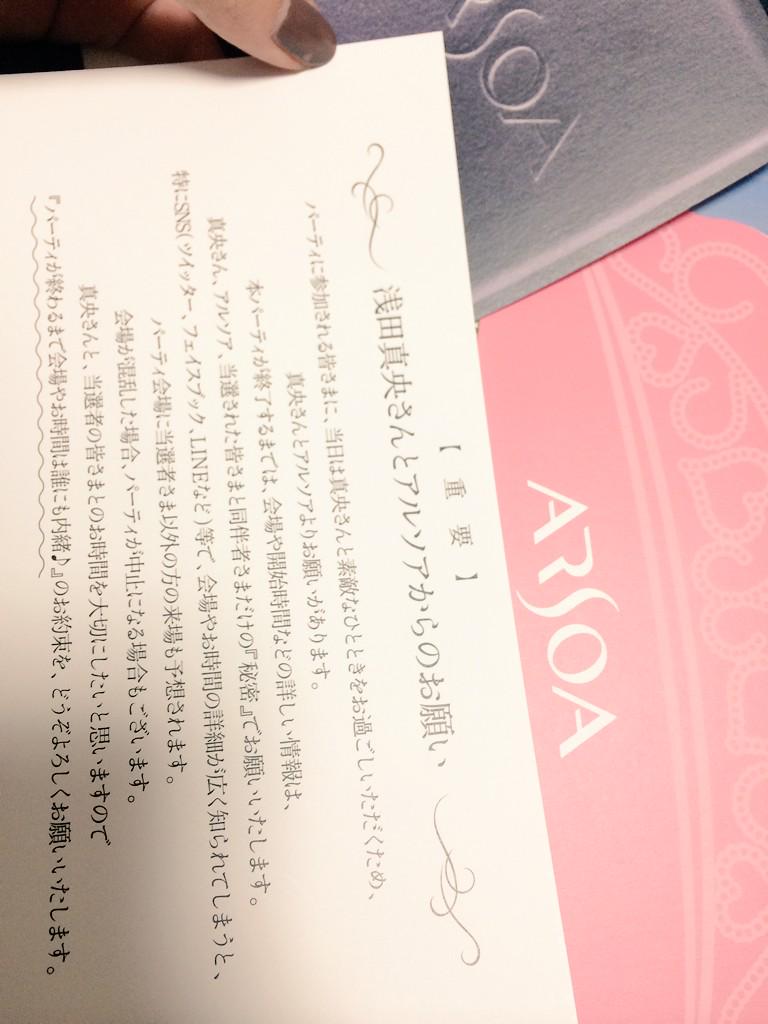 【重要】
浅田真央さんとアルソアからのお願い
パーティに参加される皆さまに、当日は真央さんと素敵なひとときをお過ごしいただくため、
真央さんとアルソアよりお願いがあります。
本パーティが終了するまでは、会場や開始時間などの詳しい情報は、
真央さん、アルソア、当選された皆さまと同伴者さまだけの『秘密』でお願いいたします。
特にSNS(ツイッター、フェイスブック、LINEなど)等で、会場やお時間の詳細が広く知られてしまうと、
パーティ会場に当選者さま以外の方の来場も予想されます。
会場が混乱した場合、パーティが中止になる場合もございます。
真央さんと、当選者の皆さまとのお時間を大切にしたいと思いますので
『パーティが終わるまで会場やお時間は誰にも内緒♪』のお約束を、どうぞよろしくお願いいたします。
ARSOA
RSOA